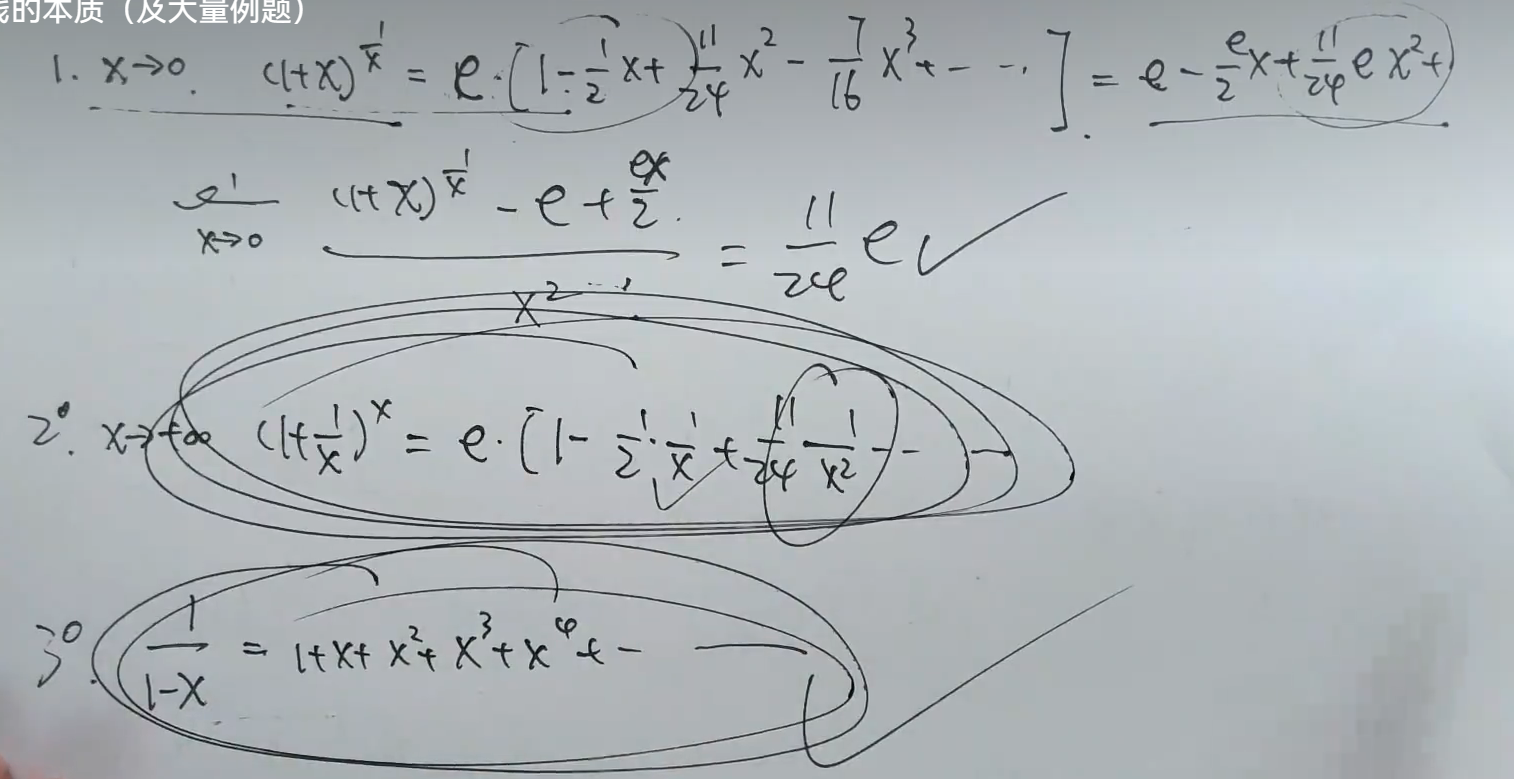 的本质（及大量例题）
1. x→0. (1+x)^{1/x} = e·[1-1/2x+11/24x²-7/16x³+--·.] = e-e/2x+11/24ex²+
x→0 (1+x)^{1/x}-e+ex/2. / x² = 11/24e
2°. x→+∞ (1+1/x)^x = e·[1-1/2·1/x+11/24 1/x²---
3°. 1/(1-x) = 1+x+x²+x³+x⁴+- —